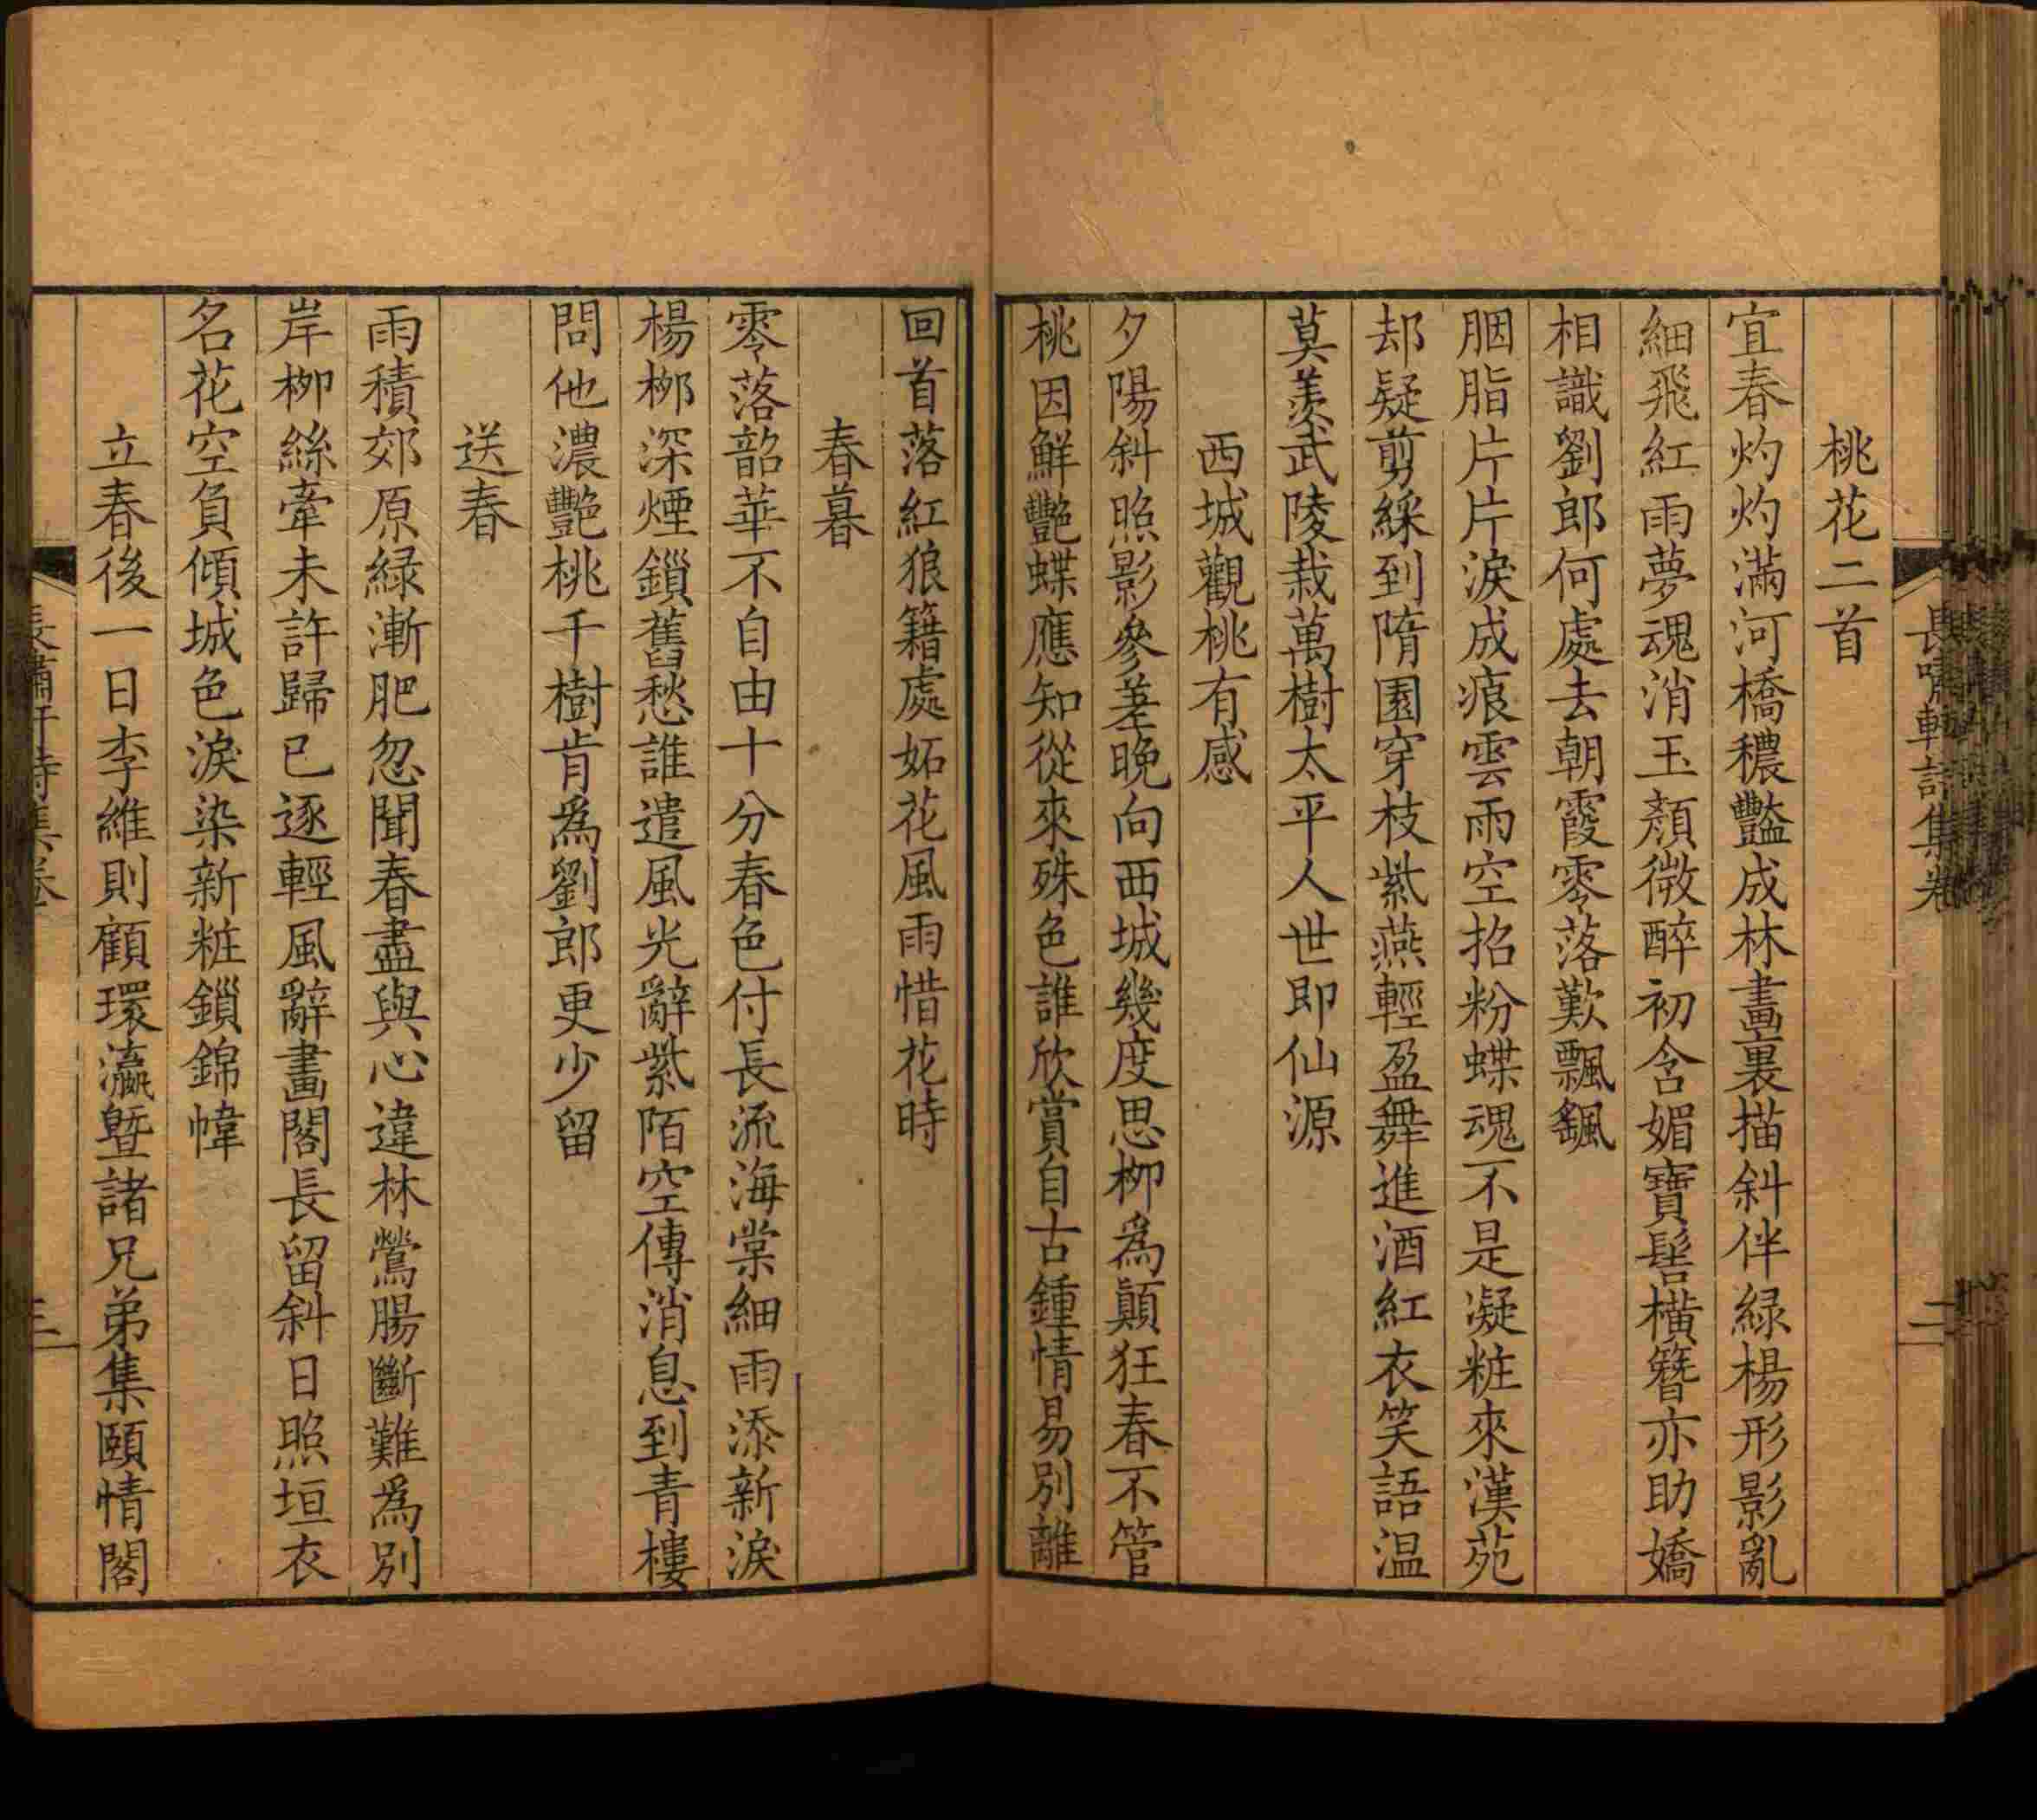 長嘯軒詩集卷
二
桃花二首
宜春灼灼滿河橋穠豔成林畫裏描斜伴緑楊形影亂
細飛紅雨夢魂消玉顏微醉初含媚寶髻橫簪亦助嬌
相識劉郎何處去朝霞零落歎飄颻
胭脂片片淚成痕雲雨空招粉蝶魂不是凝粧來漢苑
却疑剪綵到隋園穿枝紫燕輕盈舞進酒紅衣笑語温
莫羨武陵栽萬樹太平人世即仙源
西城觀桃有感
夕陽斜照影參差晚向西城幾度思柳爲顛狂春不管
桃因鮮艷蝶應知從來殊色誰欣賞自古鍾情易別離
回首落紅狼籍處妬花風雨惜花時
春暮
零落韶華不自由十分春色付長流海棠細雨添新淚
楊栁深煙鎻舊愁誰遣風光辭紫陌空傳消息到青樓
問他濃艷桃千樹肯爲劉郎更少留
送春
雨積郊原緑漸肥忽聞春盡與心違林鶯腸斷難爲別
岸栁絲牽未許歸已逐輕風辭畫閣長留斜日照垣衣
名花空負傾城色淚染新粧鎻錦幃
立春後一日李維則顧環瀛暨諸兄弟集頤情閣
長嘯軒詩集卷
三